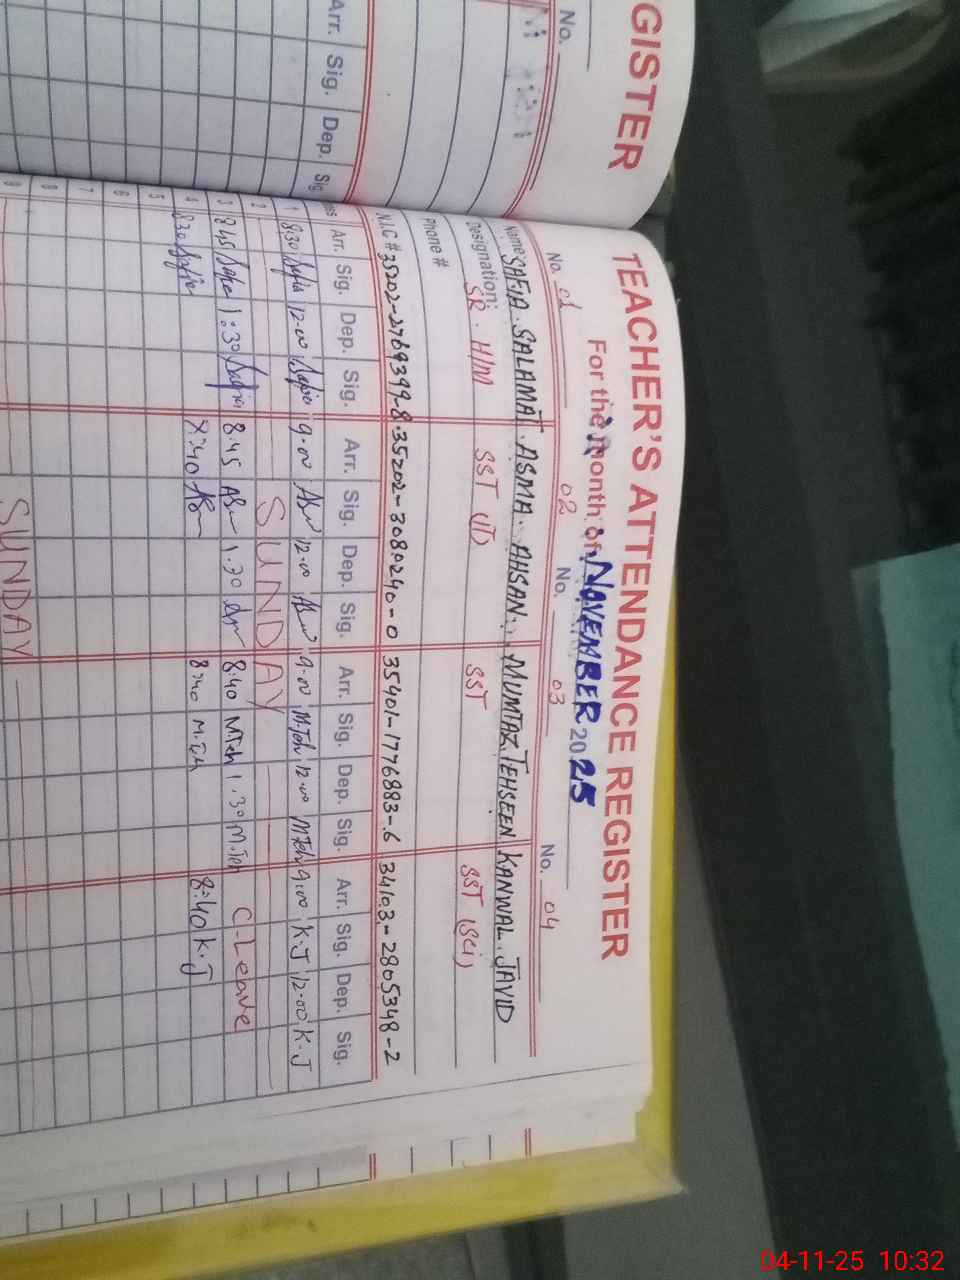 GISTER
No.
Arr. Sig. Dep. Sig.
TEACHER'S ATTENDANCE REGISTER
For the month of NOVEMBER 2025
No. 01 02 No. 03 No. 04
Name: SAFIA SALAMAT ASMA AHSAN MUMTAZ TEHSEEN KANWAL JAVID
Designation: SR. H/M SST SST SST (Sci)
Phone #
N.I.C # 35202-2769399-8 35202-3080240-0 35401-1776883-6 34103-2805348-2
Arr. Sig. Dep. Sig. Arr. Sig. Dep. Sig. Arr. Sig. Dep. Sig. Arr. Sig. Dep. Sig.
1 8:30 Safia 12:00 Safia 9:00 12:00 9:00 M.Teh 12:00 M.Teh 9:00 K.J 12:00 K.J
2 SUNDAY
3 8:45 Safia 1:30 Safia 8:45 1:30 8:40 M.Teh 1:30 M.Teh C-Leave
4 8:30 Safia 7:40 8:40 M.Teh 8:40 K.J
5
6
7
8
9 SUNDAY
04-11-25 10:32